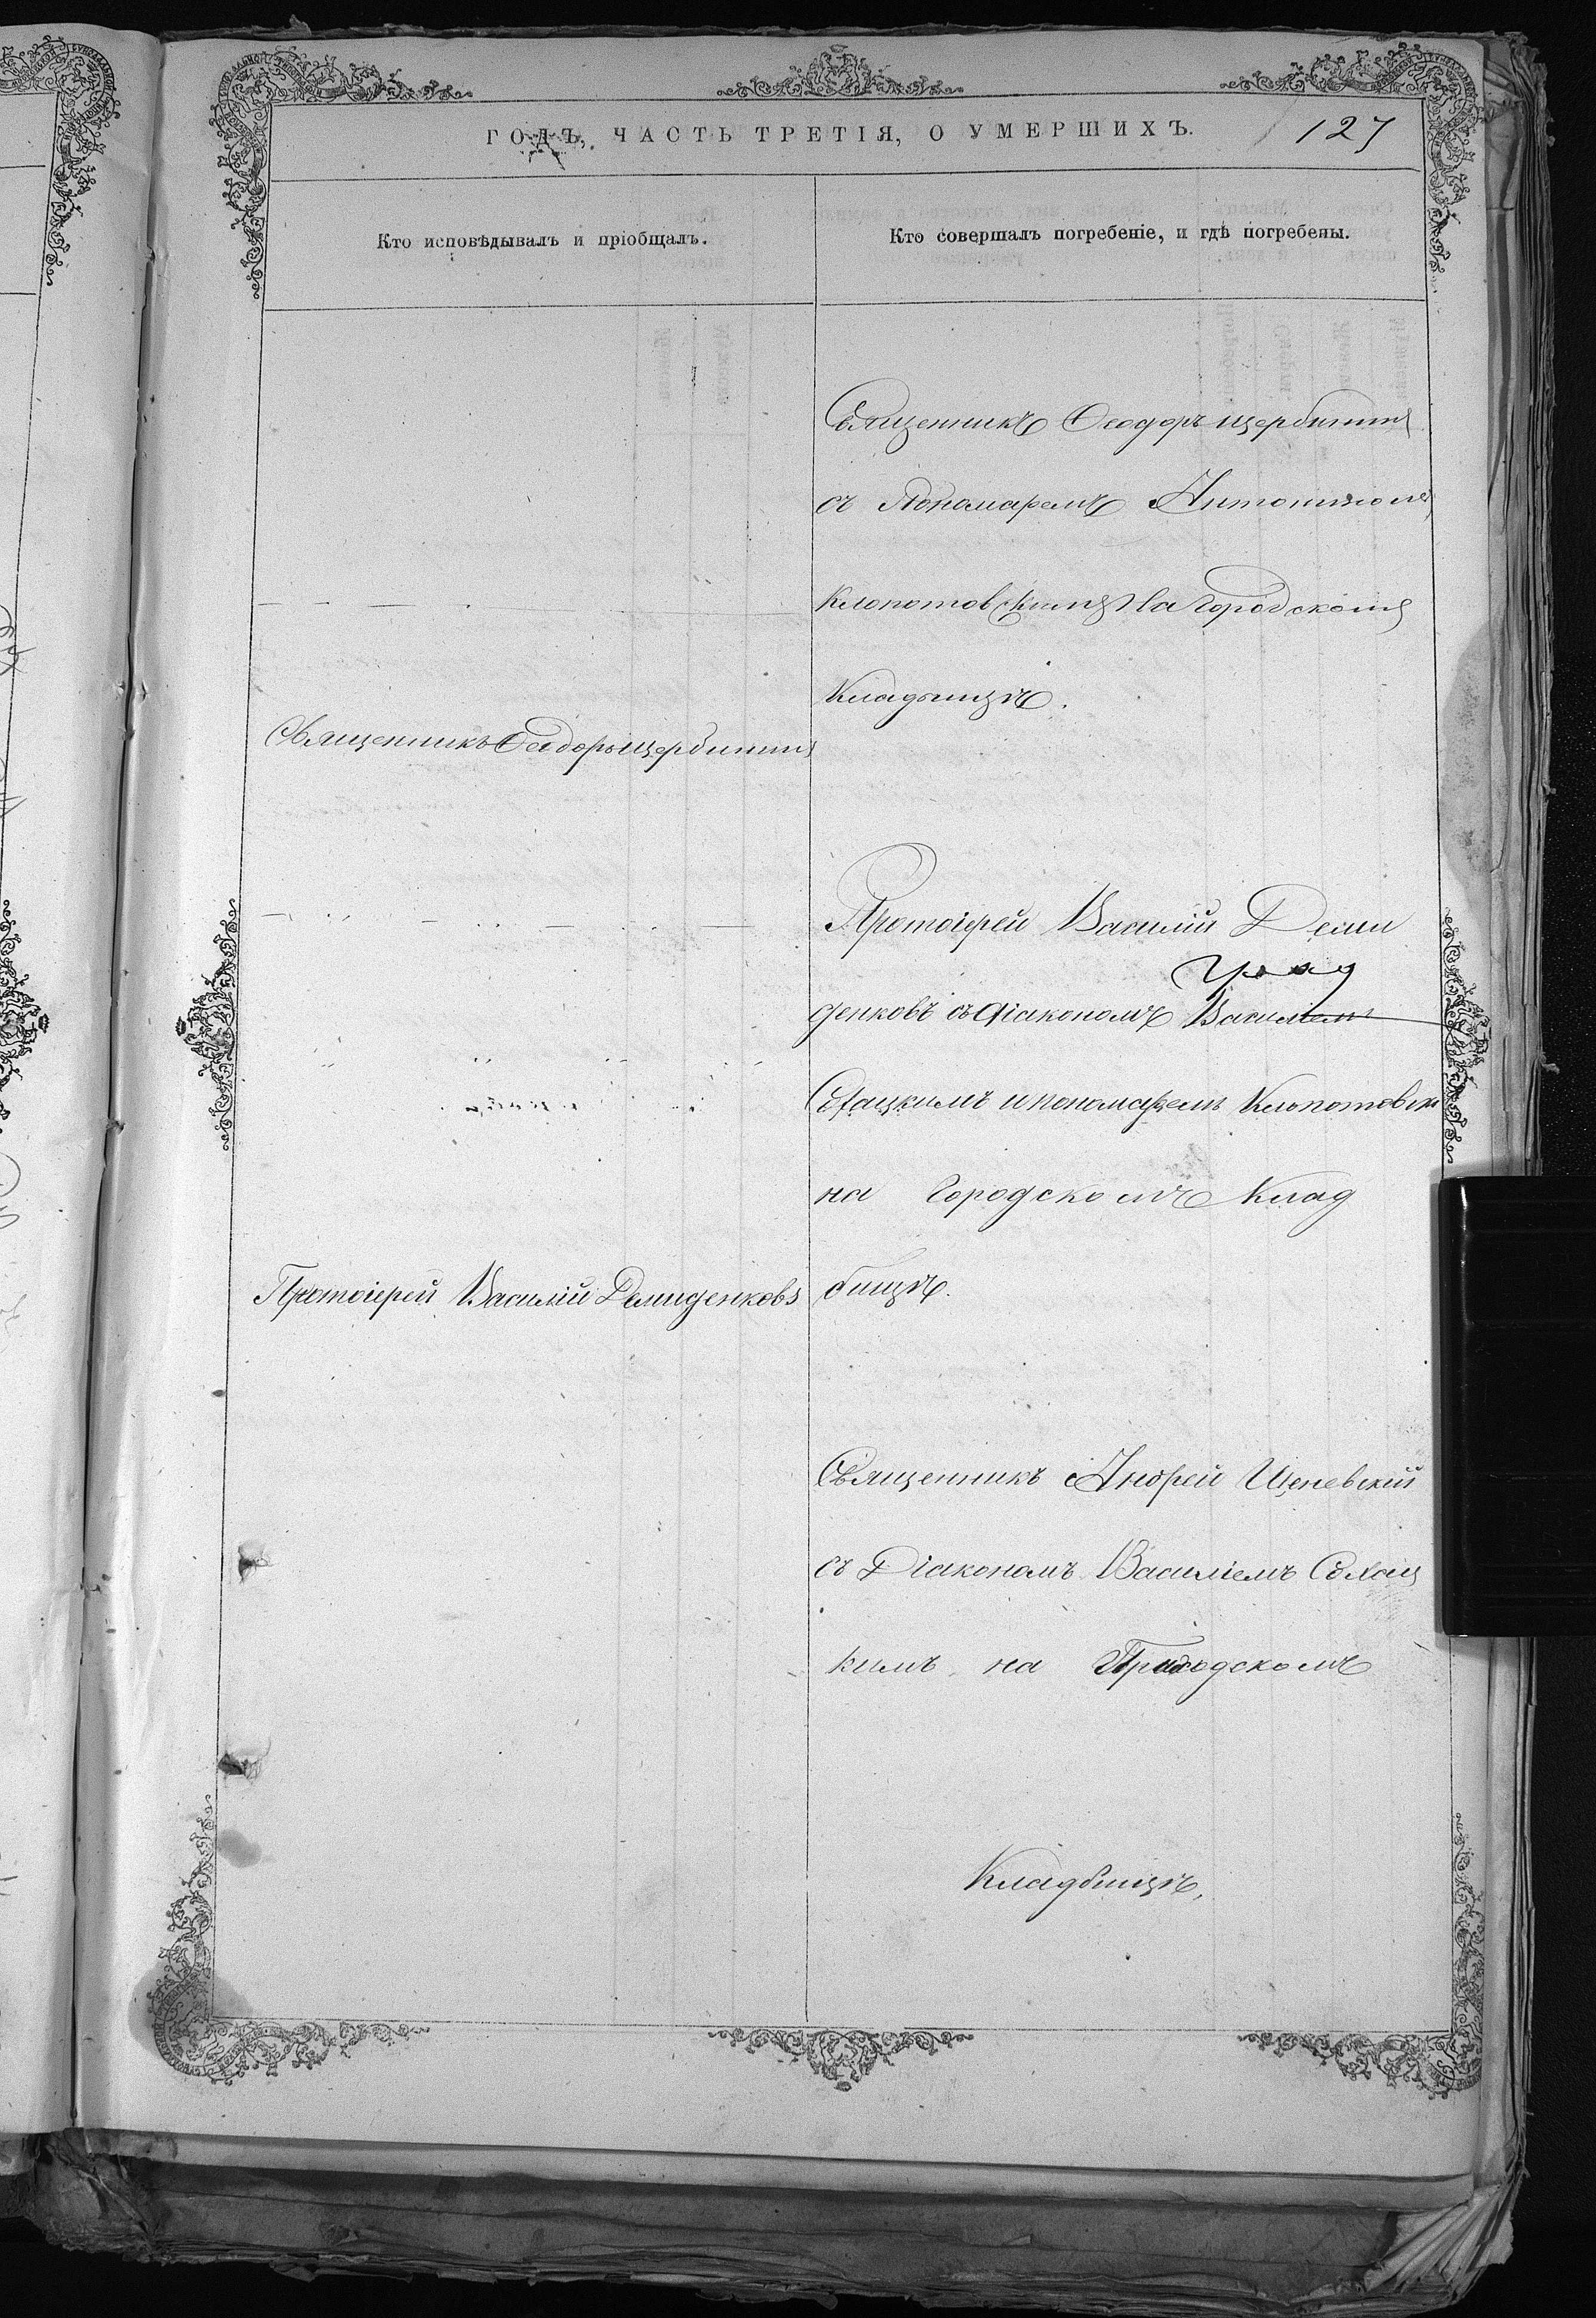 ГОДЪ, ЧАСТЬ ТРЕТІЯ, О УМЕРШИХЪ.
127
Кто исповѣдывалъ и пріобщалъ.
Кто совершалъ погребеніе, и гдѣ погребены.
Священникъ Ѳеодоръ Щербининъ
Священникъ Ѳеодоръ Щербининъ
съ Пономаремъ Антониномъ
Клопотовскимъ На Городскомъ
Кладбищѣ.
Протоіерей Василій Демиденковъ
Протоіерей Василій Деми
денковъ съ Діакономъ Василіем
и пономаремъ Клопотовск
на Городскомъ Клад
бищѣ.
Священникъ Андрей
съ Діакономъ Василіемъ
кимъ на Приходскомъ
Кладбищѣ.